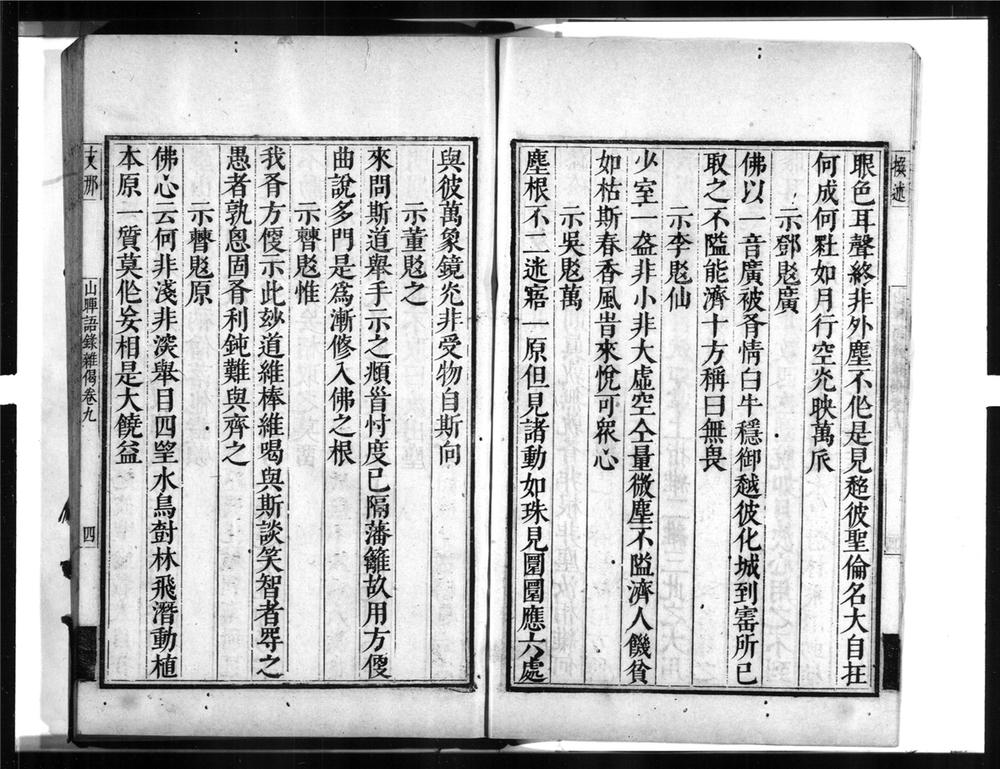 眼色耳聲終非外塵不作是見超彼聖倫名大自在
何成何壯如月行空光映萬派
示鄧起廣
佛以一音廣被有情白牛穩御越彼化城到寶所已
取之不隘能濟十方稱曰無畏
示李起仙
少室一盔非小非大虛空仝量微塵不隘濟人饑貧
如枯斯春香風旹來悅可眾心
示吳起萬
塵根不二迷寤一原但見諸動如珠見圜圜應六處
與彼萬象鏡光非受物自斯向
示董起之
來問斯道舉手示之頻眥忖度已隔藩籬故用方便
曲說多門是為漸修入佛之根
示瞽起惟
我有方便示此玅道維棒維喝與斯談笑智者得之
愚者孰恩固有利鈍難與齊之
示瞽起原
佛心云何非淺非深舉目四望水鳥對林飛潛動植
本原一質莫作妄相是大饒益
支那
山暉語錄雜偈卷九
四